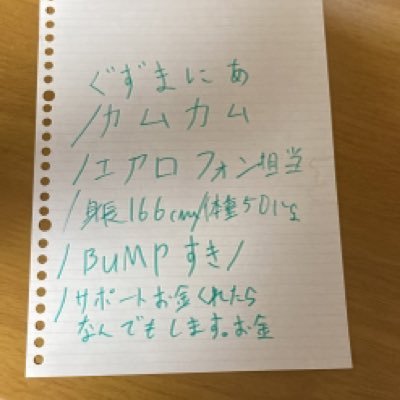 ぐずまにあ
/カムカム
/エアロフォン担当
/身長166cm/体重50kg
/BUMPすき/
/サポートお金くれたら
なんでもします。お金